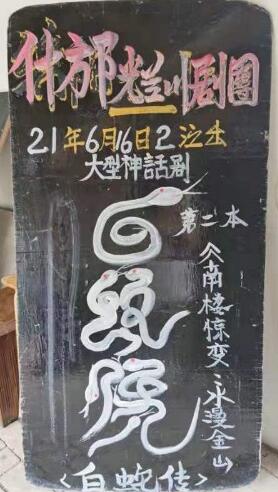 什邡兰川剧團
21年6月16日2演出
大型神話剧
白
第二本
<南楼惊变·水邊金山
<白蛇传>